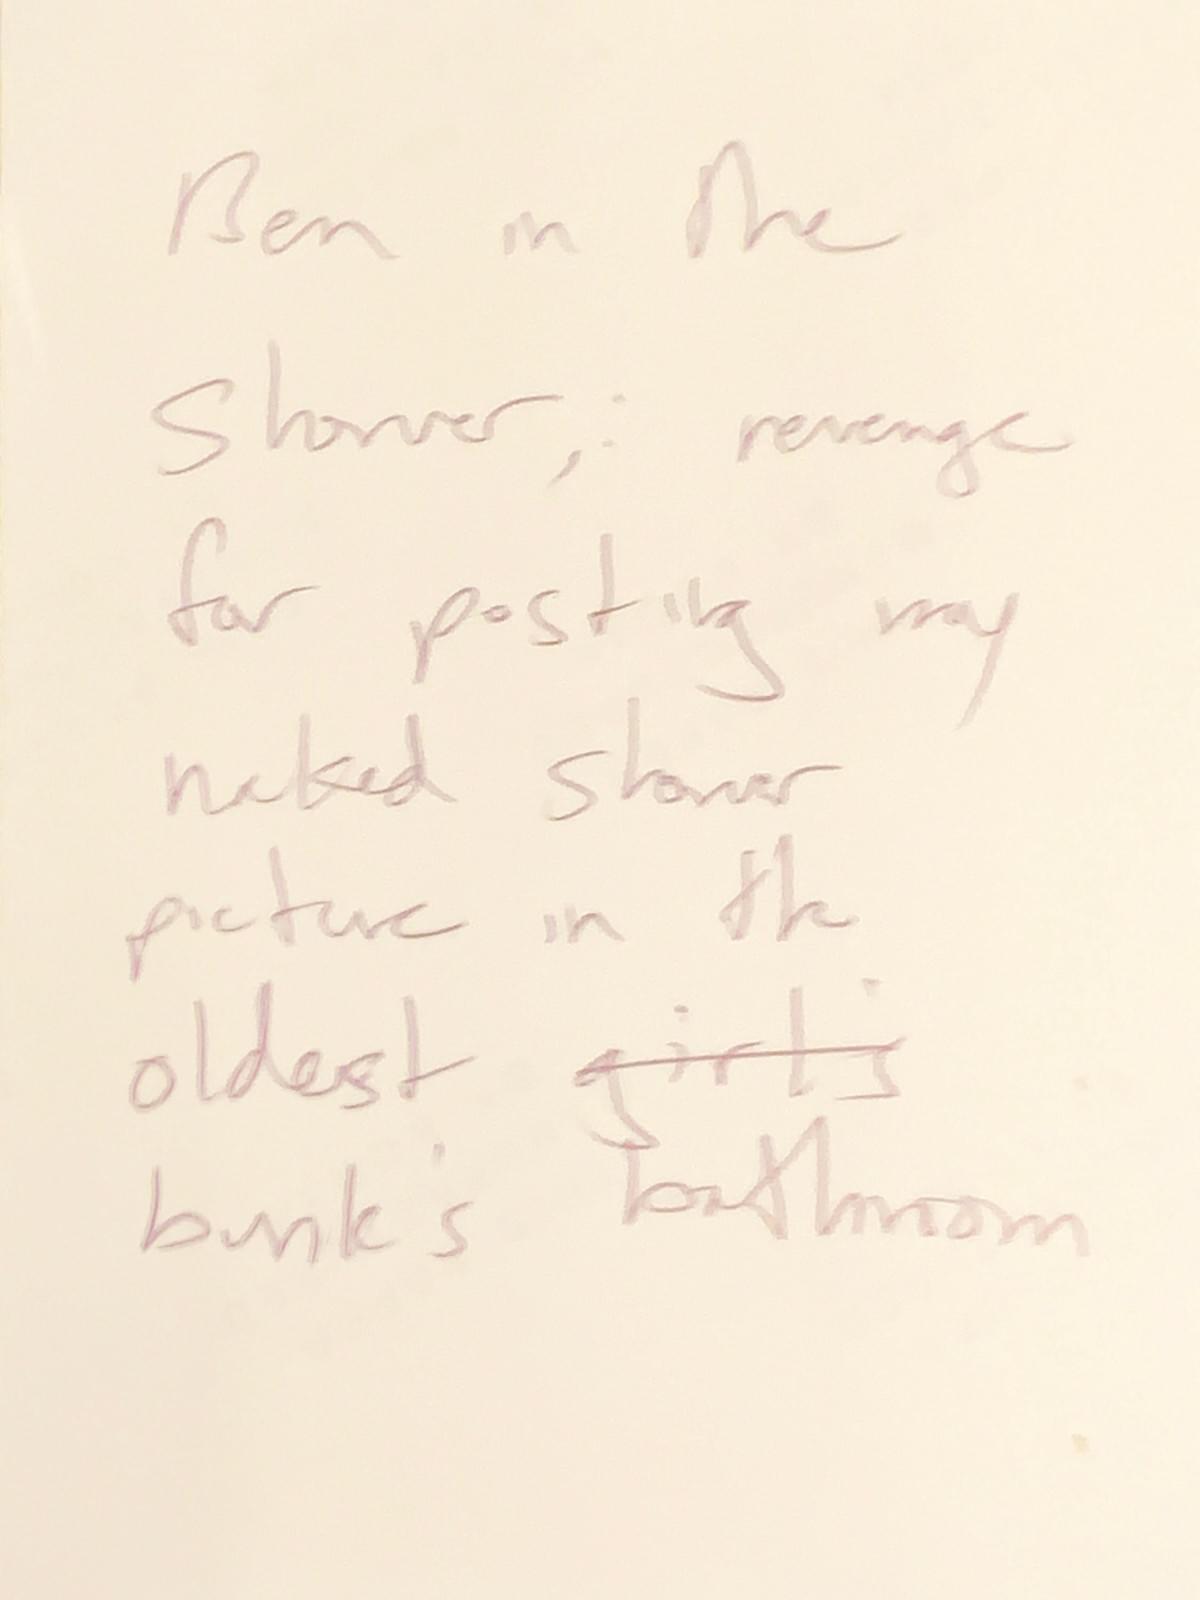 Ben in the
Shower,: revenge
for posting my
naked shower
picture in the
oldest girl's
bunk's bathroom